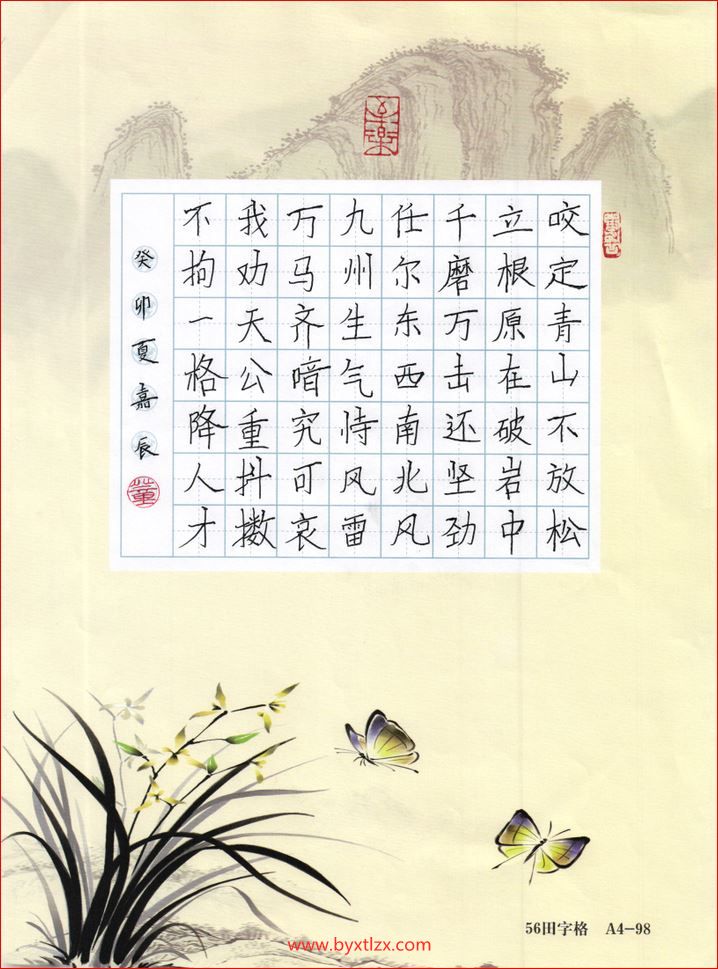 咬定青山不放松
立根原在破岩中
千磨万击还坚劲
任尔东西南北风
九州生气恃风雷
万马齐喑究可哀
我劝天公重抖擞
不拘一格降人才
癸卯夏嘉辰
董
56田字格 A4-98
www.byxtlzx.com